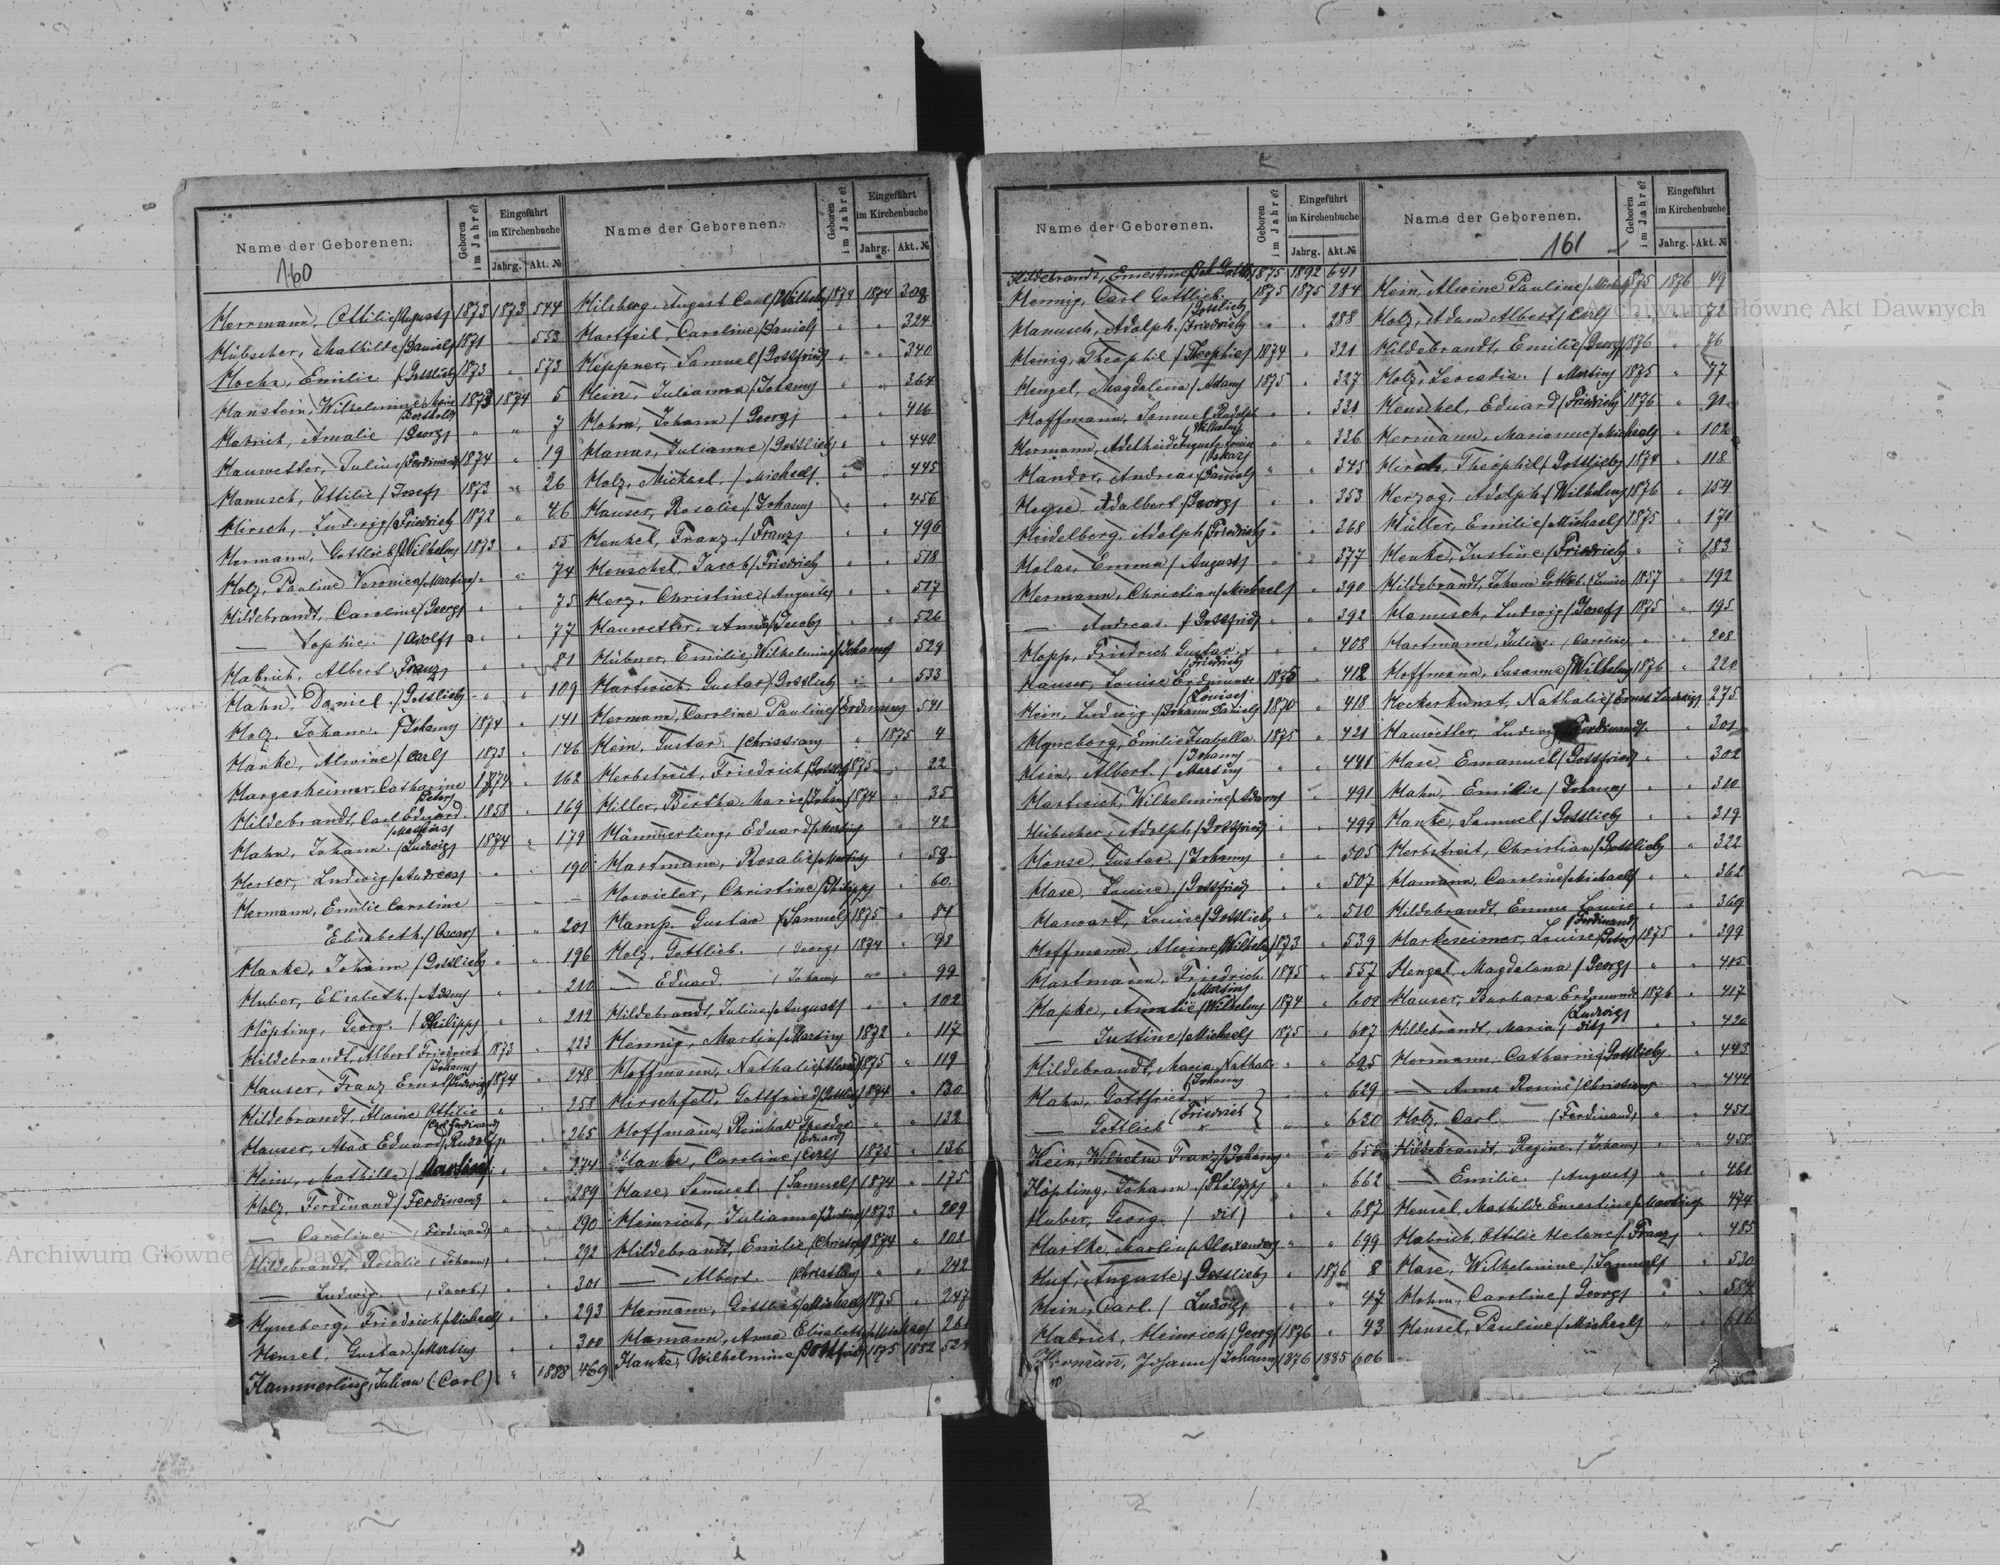 Name der Geborenen.
Geboren im Jahre?
Eingeführt im Kirchenbuche
Jahrg. Akt. №
Name der Geborenen.
Geboren im Jahre?
Eingeführt im Kirchenbuche
Jahrg. Akt. №
160
Herrmann, Ottilie /August/ 1873 1873 544
Hübscher, Mathilde /Daniel/ 1871 " 553
Emilie /Gottlieb/ 1873 " 573
Hanstein, Wilhelmine Marie /Berthold/ 1873 1874 5
Habrich, Amalie /Georg/ " " 7
Hauwetter, Julius /Ferdinand/ 1874 " 19
Hanusch, Ottilie /Josef/ 1873 " 26
Hirsch, Ludwig /Friedrich/ 1872 " 46
Hermann, Gottlieb /Wilhelm/ 1873 " 55
Holz, Pauline Veronica /Martin/ " " 74
Hildebrandt, Caroline /Georg/ " " 75
— Sophie /Adolf/ " " 77
Habrich, Albert Franz " " 81
Hahn, Daniel /Gottlieb/ " " 109
Holz, Johann /Johann/ 1874 " 141
Hanke, Alwine /Carl/ 1873 " 146
Hargesheimer, Catharine /Peter/ 1874 " 162
Hildebrandt, Carl Eduard /Mathias/ 1858 " 169
Hahn, Johann /Ludwig/ 1874 " 179
Herter, Ludwig /Andreas/ " " 190
Hermann, Emilie Caroline
Elisabeth /Oscar/ " " 201
Hanke, Johann /Gottlieb/ " " 196
Huber, Elisabeth /Adam/ " " 210
Höpting, Georg /Philipp/ " " 212
Hildebrandt, Albert Friedrich /Johann/ 1873 " 223
Hauser, Franz Ernst /Ludwig/ 1874 " 248
Hildebrandt, Alwine Ottilie /Carl Ferdinand/ " " 258
Hauser, Max Eduard /Rudolf/ " " 265
Hein, Mathilde /Martin/ " " 274
Holz, Ferdinand /Ferdinand/ " " 289
— Caroline /Ferdinand/ " " 290
Hildebrandt, Rosalie /Johann/ " " 292
— Ludwig /Jacob/ " " 301
Hyneborg, Friedrich /Michael/ " " 293
Hensel, Gustav /Martin/ " " 300
Hammerling, Julian (Carl) " 1888 469
Hilsberg, August Carl /Wilhelm/ 1874 1874 308
Hartfeil, Caroline /Daniel/ " " 324
Heppner, Samuel /Gottfried/ " " 340
Hein, Julianna /Johann/ " " 364
Hohm, Johann /Georg/ " " 416
Hanas, Julianne /Gottlieb/ " " 440
Holz, Michael /Michael/ " " 445
Hauser, Rosalie /Johann/ " " 456
Henkel, Franz /Franz/ " " 496
Henschel, Jacob /Friedrich/ " " 518
Herz, Christine /August/ " " 517
Hauwetter, Anna /Jacob/ " " 526
Hübner, Emilie Wilhelmine /Johann/ 529
Hartwich, Gustav /Gottlieb/ " " 533
Hermann, Caroline Pauline /Erdmann/ 541
Hein, Gustav /Christian/ " 1875 4
Herbstreit, Friedrich /Gottlieb/ 1875 " 22
Hiller, Bertha Marie /Johann/ 1874 " 35
Hämmerling, Eduard /Martin/ " 42
Hartmann, Rosalie /Martin/ " 58
Christine /Philipp/ " 60
Hamp, Gustav /Samuel/ 1875 " 84
Holz, Gottlieb /Georg/ 1874 " 98
— Eduard /Johann/ " " 99
Hildebrandt, Julius /August/ " " 102
Hennig, Martin /Martin/ 1872 " 117
Hoffmann, Nathalie 1875 " 119
Hirschfeld, Gottfried /Gottlieb/ 1874 " 130
Hoffmann, Reinhold Theodor /Eduard/ " " 132
Hanke, Caroline /Carl/ 1875 " 136
Hase, Samuel /Samuel/ 1874 " 175
Heinrich, Julianne 1873 " 209
Hildebrandt, Emilie /Christoph/ 1874 " 202
— Albert /Christian/ " " 242
Hermann, Gottlieb /Michael/ 1875 " 247
Hamann, Anna Elisabeth /Michael/ 261
Hanke, Wilhelmine /Gottfried/ 1875 1882
Name der Geborenen.
Geboren im Jahre?
Eingeführt im Kirchenbuche
Jahrg. Akt. №
Name der Geborenen.
Geboren im Jahre?
Eingeführt im Kirchenbuche
Jahrg. Akt. №
161
Hildebrandt, Ernestine 1875 1892 641
Hennig, Carl Gottlieb /Gottlieb/ 1875 1875 284
Hanusch, Adolph /Friedrich/ " " 288
Henig, Theophil /Theophil/ 1874 " 321
Henzel, Magdalena /Adam/ 1875 " 327
Hoffmann, Samuel Rudolph /Wilhelm/ " " 331
Hermann, Adelheid Auguste Louise /Oskar/ " " 336
Handor, Andreas /Daniel/ " " 345
Heyse, Adalbert /Georg/ " " 353
Heidelberg, Adolph /Friedrich/ " " 368
Holas, Emma /August/ " " 377
Hermann, Christian /Michael/ " 390
— Andreas /Gottfried/ " " 392
Hopp, Friedrich Gustav /Friedrich/ " " 408
Hauser, Louise Erdmunde /Louise/ 1875 " 412
Hein, Ludwig /Johann Daniel/ 1870 " 418
Hyneborg, Emilie Isabella /Johann/ 1875 " 421
Hein, Albert /Martin/ " " 441
Hartwich, Wilhelmine /Adam/ " 491
Hübscher, Adolph /Gottfried/ " " 499
Hänse, Gustav /Johann/ " " 505
Hase, Louise /Gottfried/ " " 507
Louise /Gottlieb/ " " 510
Hoffmann, Alwine /Wilhelm/ 1873 " 539
Hartmann, Friedrich /Martin/ 1875 " 557
Hapke, Amalie /Wilhelm/ 1874 " 602
— Justine /Michael/ 1875 " 607
Hildebrandt, Maria Nathalie /Johann/ " " 625
Hahn, Gottfried " " 629
— Gottlieb /Friedrich/ " " 630
Hein, Wilhelm Franz /Johann/ " " 656
Höpting, Johann /Philipp/ " " 662
Huber, Georg / dit/ " " 687
Hartke, Martin /Alexander/ " " 699
Huf, Auguste /Gottlieb/ " 1876 8
Hein, Carl / Ludwig/ " " 47
Habrich, Heinrich /Georg/ 1876 " 43
Hermann, Johann /Johann/ 1876 1885 606
Hein, Alwine Pauline /Michael/ 1875 1876 49
Holz, Adam Albert /Carl/ " " 72
Hildebrandt, Emilie /Georg/ 1876 " 76
Holz, Leocadia /Martin/ 1875 " 77
Henschel, Eduard /Friedrich/ 1876 " 91
Hermann, Marianne /Michael/ " " 102
Hirsch, Theophil /Gottlieb/ 1874 " 118
Herzog, Adolph /Wilhelm/ 1876 " 154
Hüller, Emilie /Michael/ 1875 " 171
Henke, Justine /Friedrich/ " " 183
Hildebrandt, Johann Gottlieb /Louise/ 1857 " 192
Hanusch, Ludwig /Josef/ 1875 " 195
Hartmann, Julius /Caroline/ " " 208
Hoffmann, Susanna /Wilhelm/ 1876 " 220
Hockerkunst, Nathalie /Ernst Ludwig/ 275
Hauwetter, Ludwig /Ferdinand/ " 301
Hase, Emanuel /Gottfried/ " " 302
Hahn, Emilie /Johann/ " " 310
Hanke, Samuel /Gottlieb/ " " 319
Herbstreit, Christian /Gottlieb/ " 322
Hamann, Caroline /Michael/ " " 362
Hildebrandt, Emma Louise /Ferdinand/ " " 369
Harkeseimer, Louise /Peter/ 1875 " 399
Henzel, Magdalena /Georg/ " " 405
Hauser, Barbara Erdmunde /Ludwig/ 1876 " 417
Hildebrandt, Maria / dit/ " " 420
Hermann, Catharine /Gottlieb/ " " 443
— Anna Rosine /Christian/ " " 444
Holz, Carl — /Ferdinand/ " " 451
Hildebrandt, Regine /Johann/ " "
— Emilie /August/ " " 461
Hensel, Mathilde Ernestine /Martin/ 474
Habrich, Ottilie Helene /Franz/ " 485
Hase, Wilhelmine /Samuel/ " " 530
Hohm, Caroline /Georg/ " " 584
Hensel, Pauline /Michael/ " " 616
Archiwum Główne Akt Dawnych
Archiwum Główne Akt Dawnych